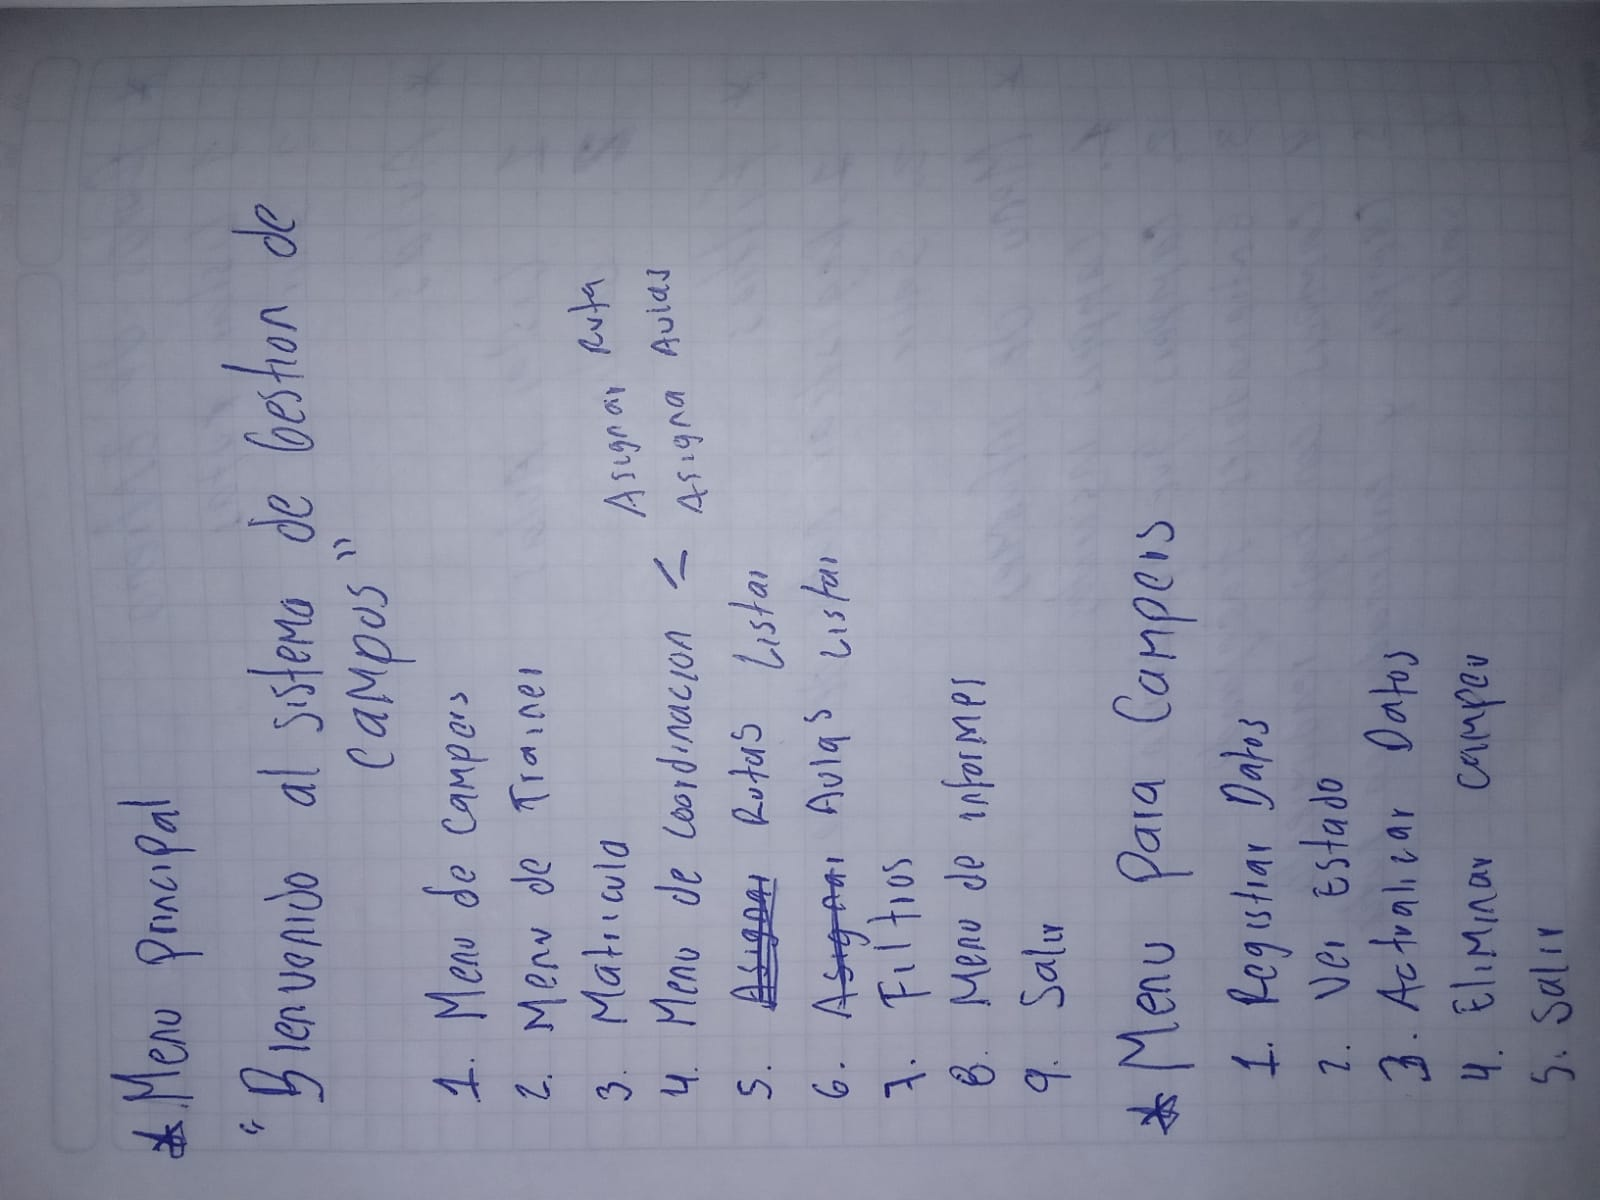 * Menu Principal
"Bienvenido al sistema de Gestion de
campus"
1. Menu de campers
2. Menu de Trainer
3. Matricula
4. Menu de coordinacion < Asignar Ruta
Asigna Aulas
5. Asignar Rutas Listar
6. Asignar Aulas Listar
7. Filtros
8. Menu de informes
9. Salir
* Menu Para Campers
1. Registrar Datos
2. Ver Estado
3. Actualizar Datos
4. Eliminar camper
5. Salir